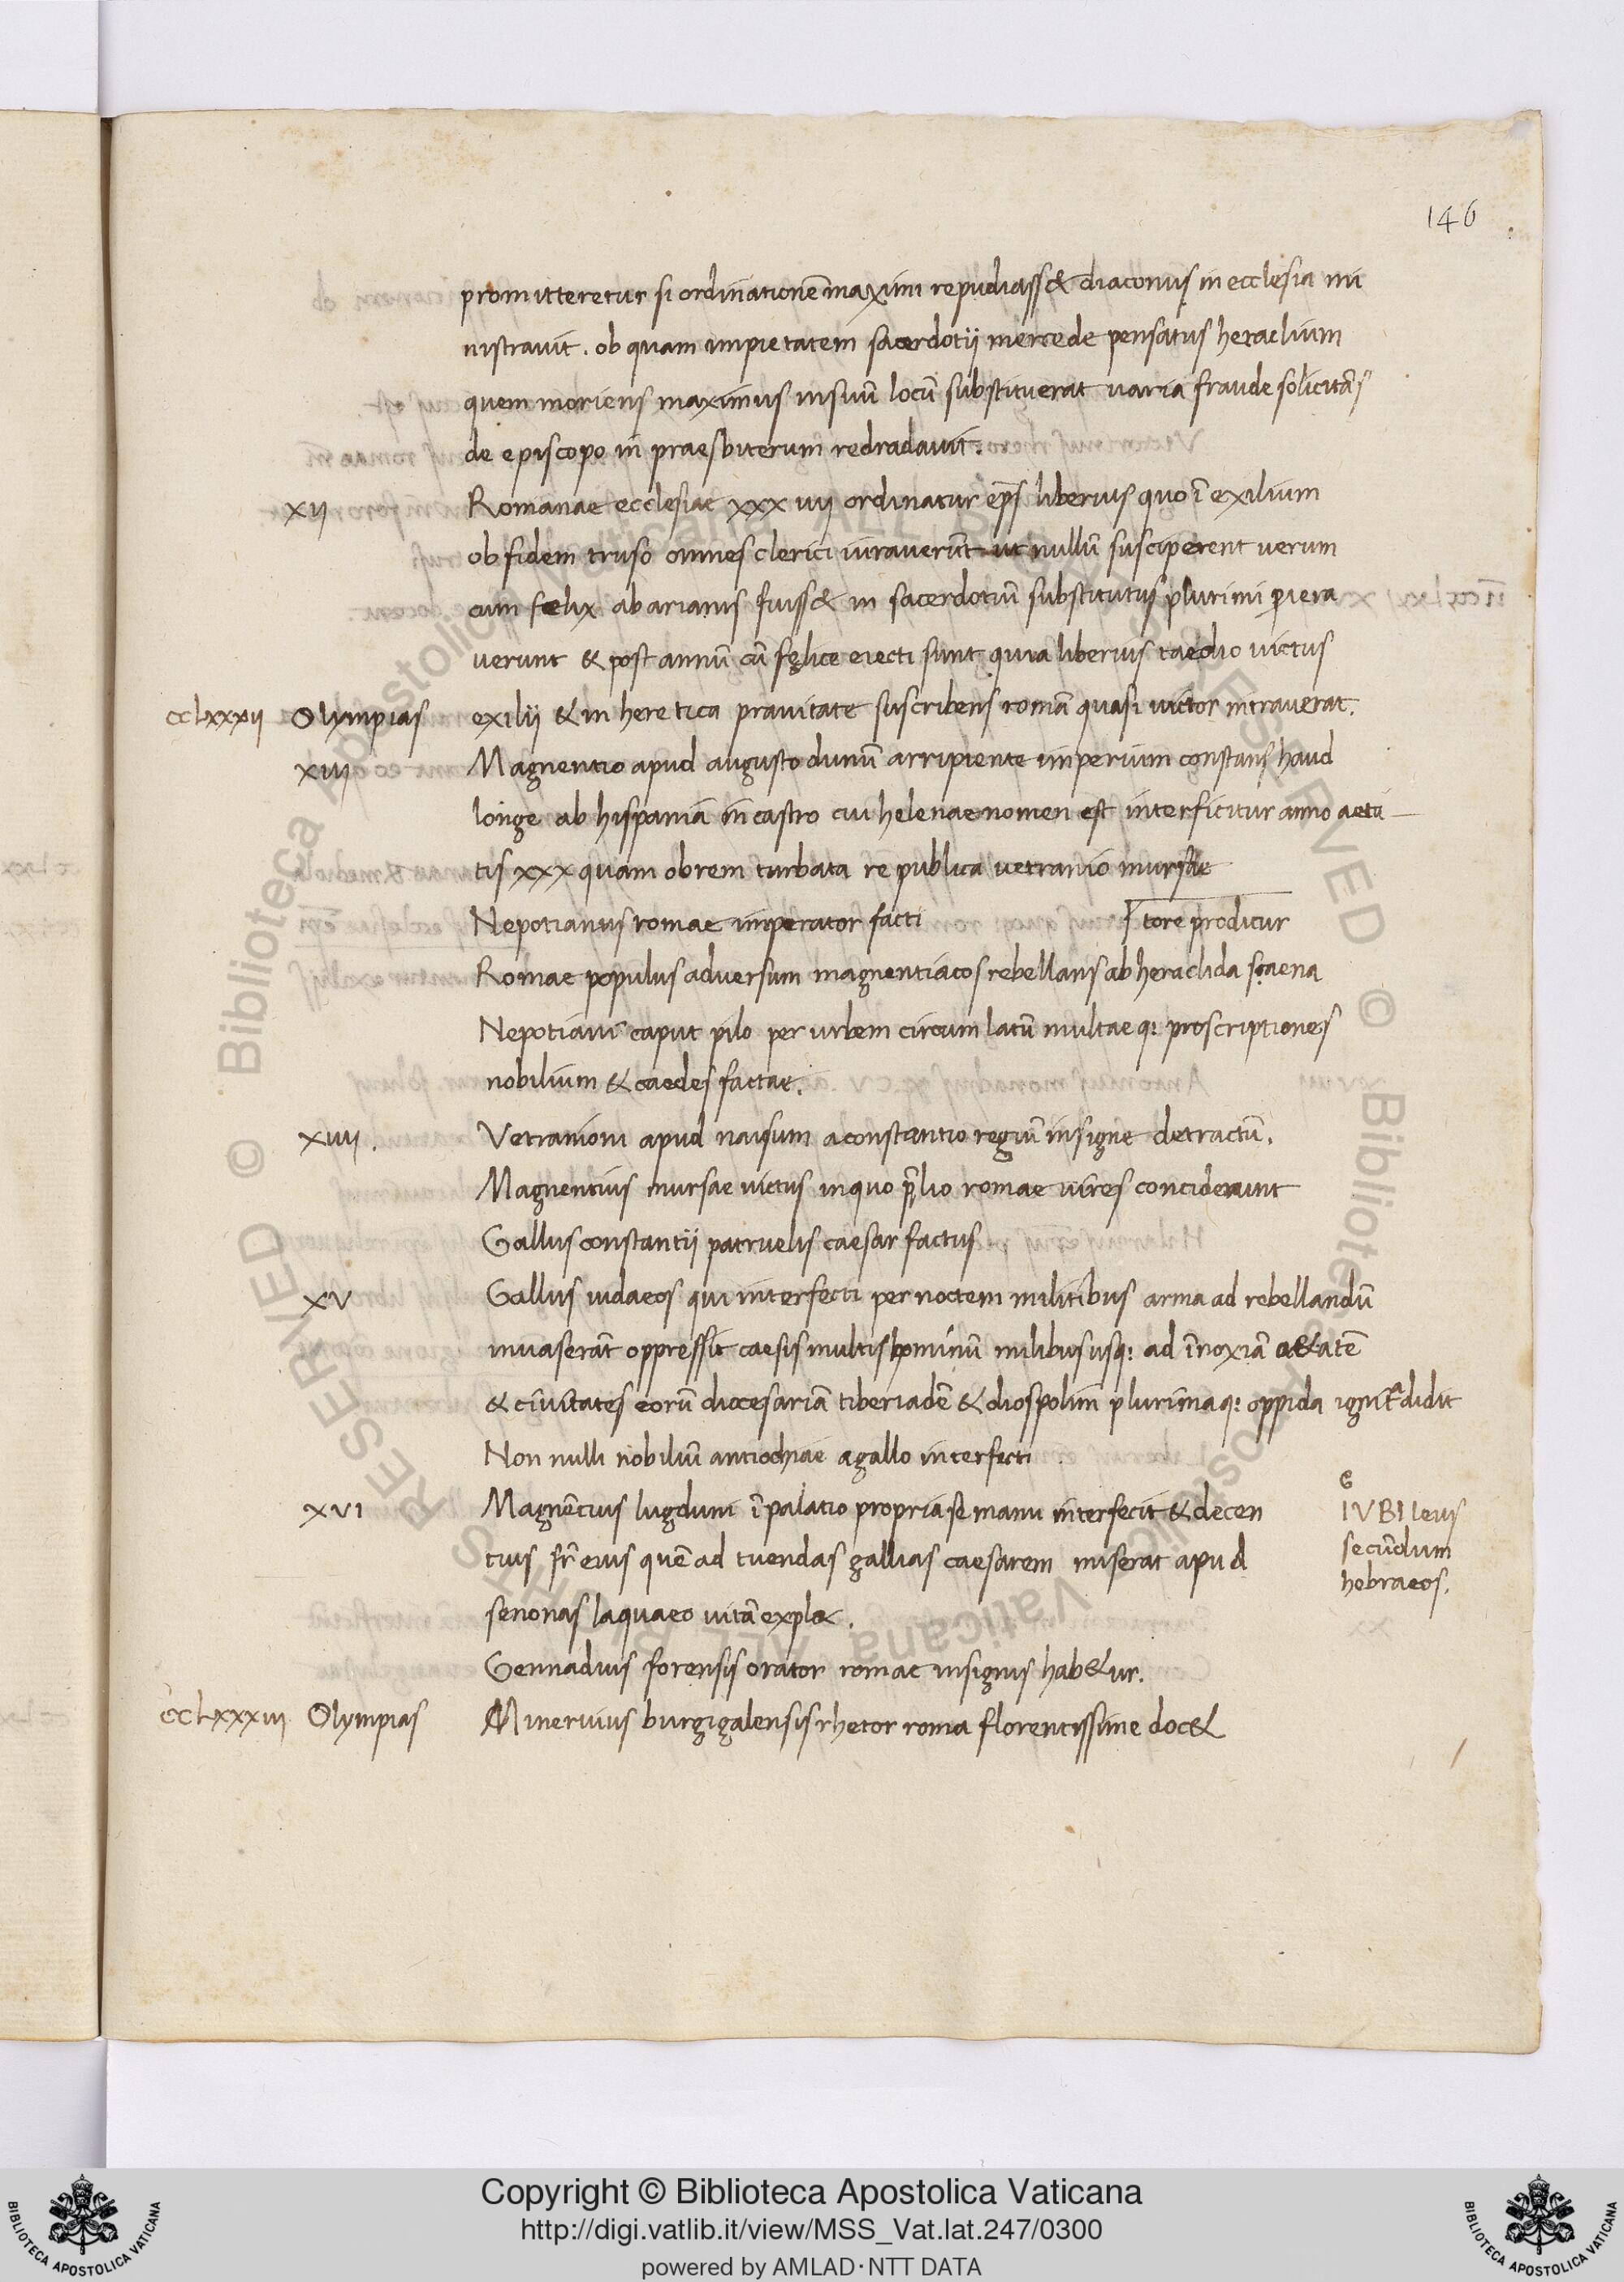 146
promitteretur si ordinationē maximi repudiass& diaconus in ecclesia mi
nistravit. ob quam impietatem sacerdotii mercede pensatus heraclium
quem moriens maximus insuū locū substituerat varia fraude solicitās
de episcopo in praesbiterum redradavit:
XII Romanae ecclesiae XXXIIII ordinatur eps̄ liberius quo ī exilium
ob fidem truso omnes clerici iuraverūt ut nullū susciperent verum
cum foelix ab arianis fuiss& in sacerdotiū substitutus plurimi piera
verunt & post annū cū fęlice eiecti sunt quia liberius taedio victus
CCLXXXII Olympias exilii & in heretica pravitate suscribens romā quasi victor intraverat.
XIII Magnentio apud augustodunū arripiente imperium constans haud
longe ab hispaniā in castro cui helenae nomen est interficitur anno aeta
tis XXX quam obrem turbata re publica vetranio mursae
Nepotianus romae imperator facti tore proditur
Romae populus adversum magnentiacos rebellans ab heraclida scaena
Nepotiani caput pilo per urbem circum latū multae q: proscriptiones
nobilium & caedes factae.
XIIII. Vetranioni apud naisum a constantio regiū insigne detractū.
Magnentius mursae victus inquo p̄lio romae vires conciderunt
Gallus constantii patruelis caesar factus
XV Gallus iudaeos qui interfecti per noctem militibus arma ad rebellandū
invaserāt oppressit caesis multis hominū milibus usq: ad īnoxiā a&atē
& civitates eorū diocesariā tiberiadē & diospolim plurimaq: oppida igni tradidit
Non nulli nobiliū antiochiae a gallo interfecti
XVI Magnētius lugduni ī palatio propria se manu interfecit & decen
tius fr̄ eius quē ad tuendas gallias caesarem miserat apud
senonas laquaeo vitā expl&.
G
IVBIleus
secūdum
hebraeos.
Gennadius forensis orator romae insignis hab&ur.
CCLXXXIII Olympias Minervius burgigalensis rhetor roma florentissime doc&
Copyright © Biblioteca Apostolica Vaticana
http://digi.vatlib.it/view/MSS_Vat.lat.247/0300
powered by AMLAD·NTT DATA
BIBLIOTECA APOSTOLICA VATICANA
BIBLIOTECA APOSTOLICA VATICANA